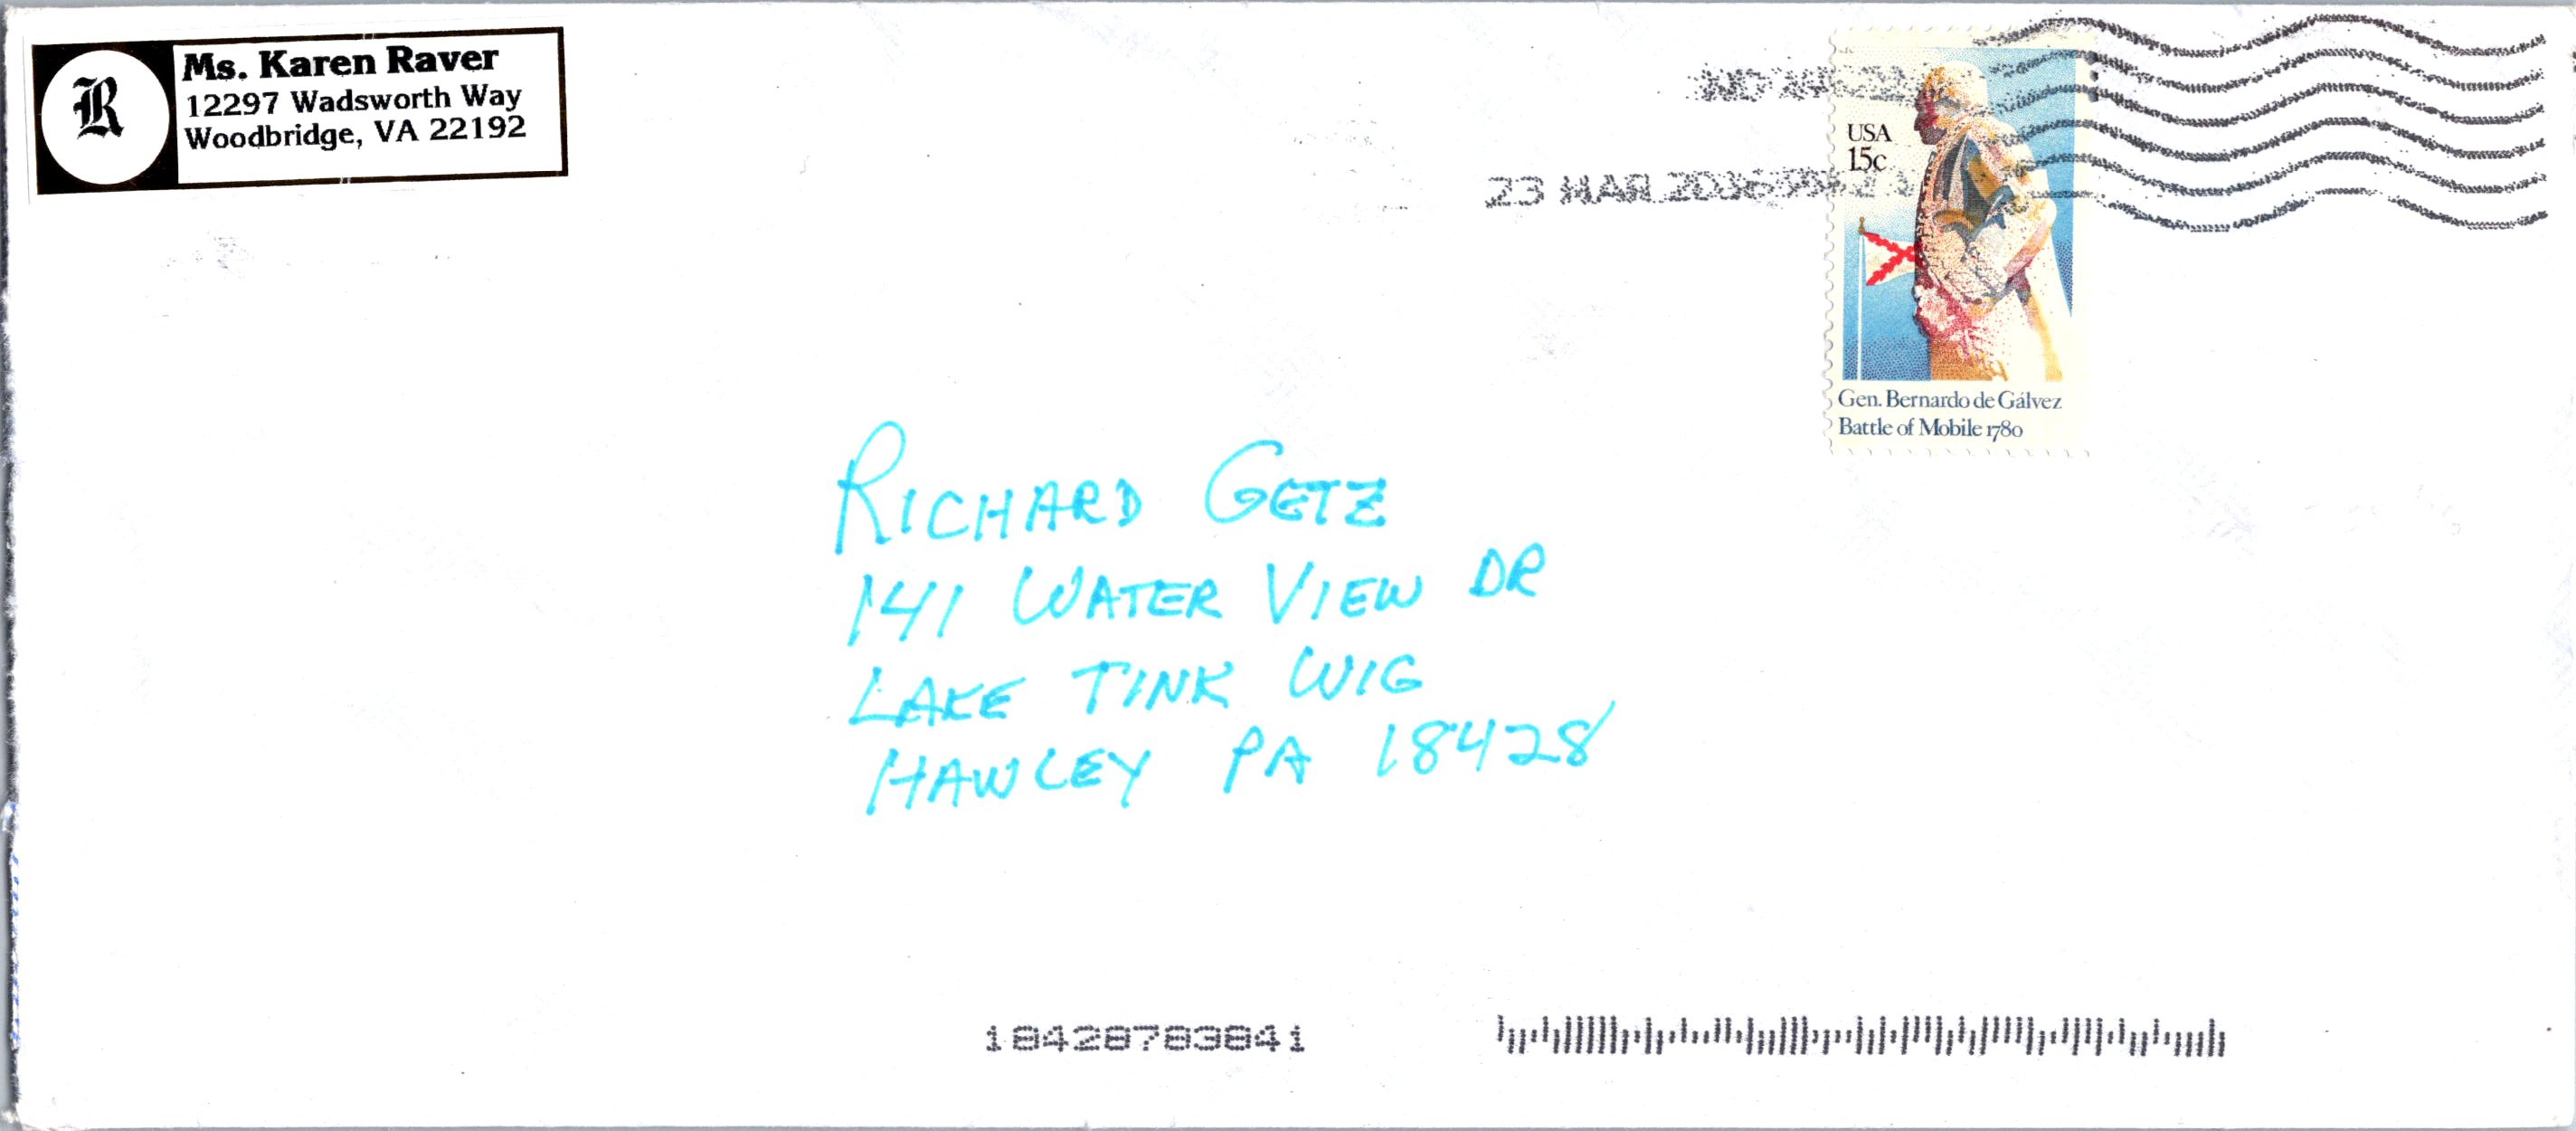 R
Ms. Karen Raver
12297 Wadsworth Way
Woodbridge, VA 22192
23 MAR
USA
15c
Gen. Bernardo de Gálvez
Battle of Mobile 1780
RICHARD GETZ
141 WATER VIEW DR
LAKE TINK WIG
HAWLEY PA 18428
18428783841